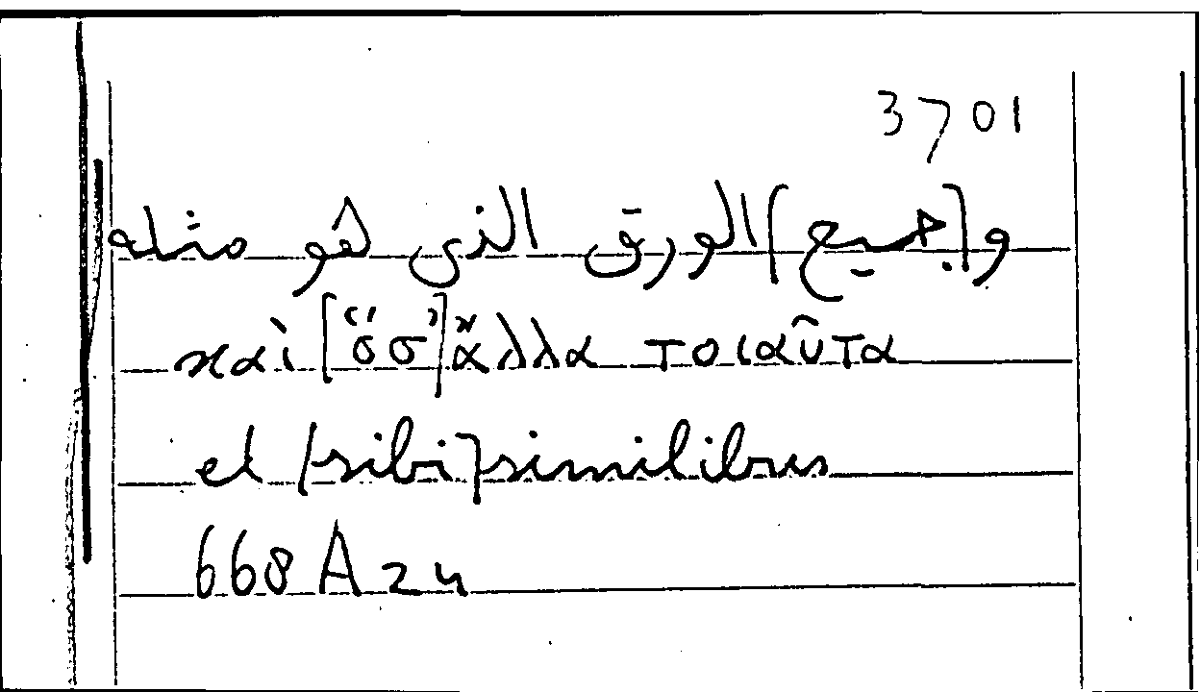 3701
و[جميع] الورق الذى هو مثله
καὶ [ὅσ’] ἄλλα τοιαῦτα
et [sibi] similibus
668 A 24